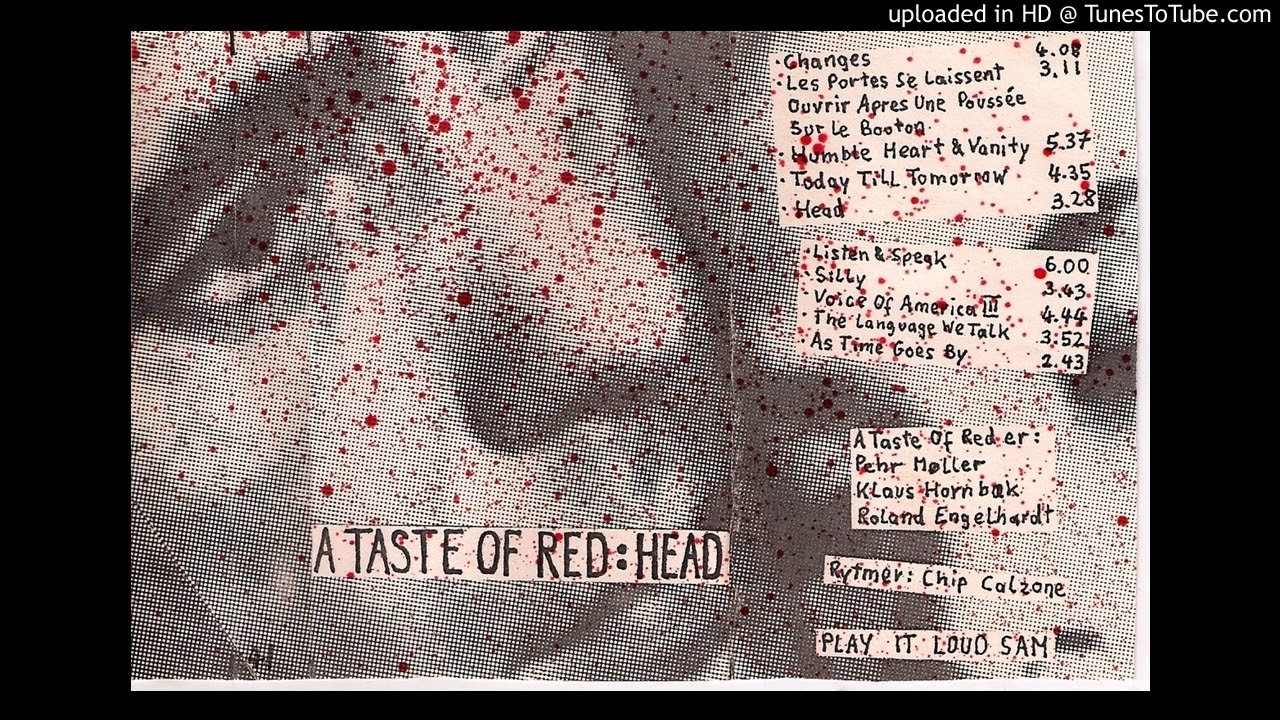 uploaded in HD @ TunesToTube.com
·Changes 4.08
·Les Portes Se Laissent 3.11
Ouvrir Apres Une Poussée
Sur Le Booton
Humble Heart & Vanity 5.37
·Today Till Tomorrow 4.35
·Head 3.28
·Listen & Speak 6.00
·Silly 3.43
Voice Of America III 4.44
·The Language We Talk 3:52
·As Time Goes By 2.43
A Taste Of Red er:
Pehr Møller
Klaus Hornbak
Roland Engelhardt
A TASTE OF RED:HEAD
Rytmer: Chip Calzone
PLAY IT LOUD SAM
41